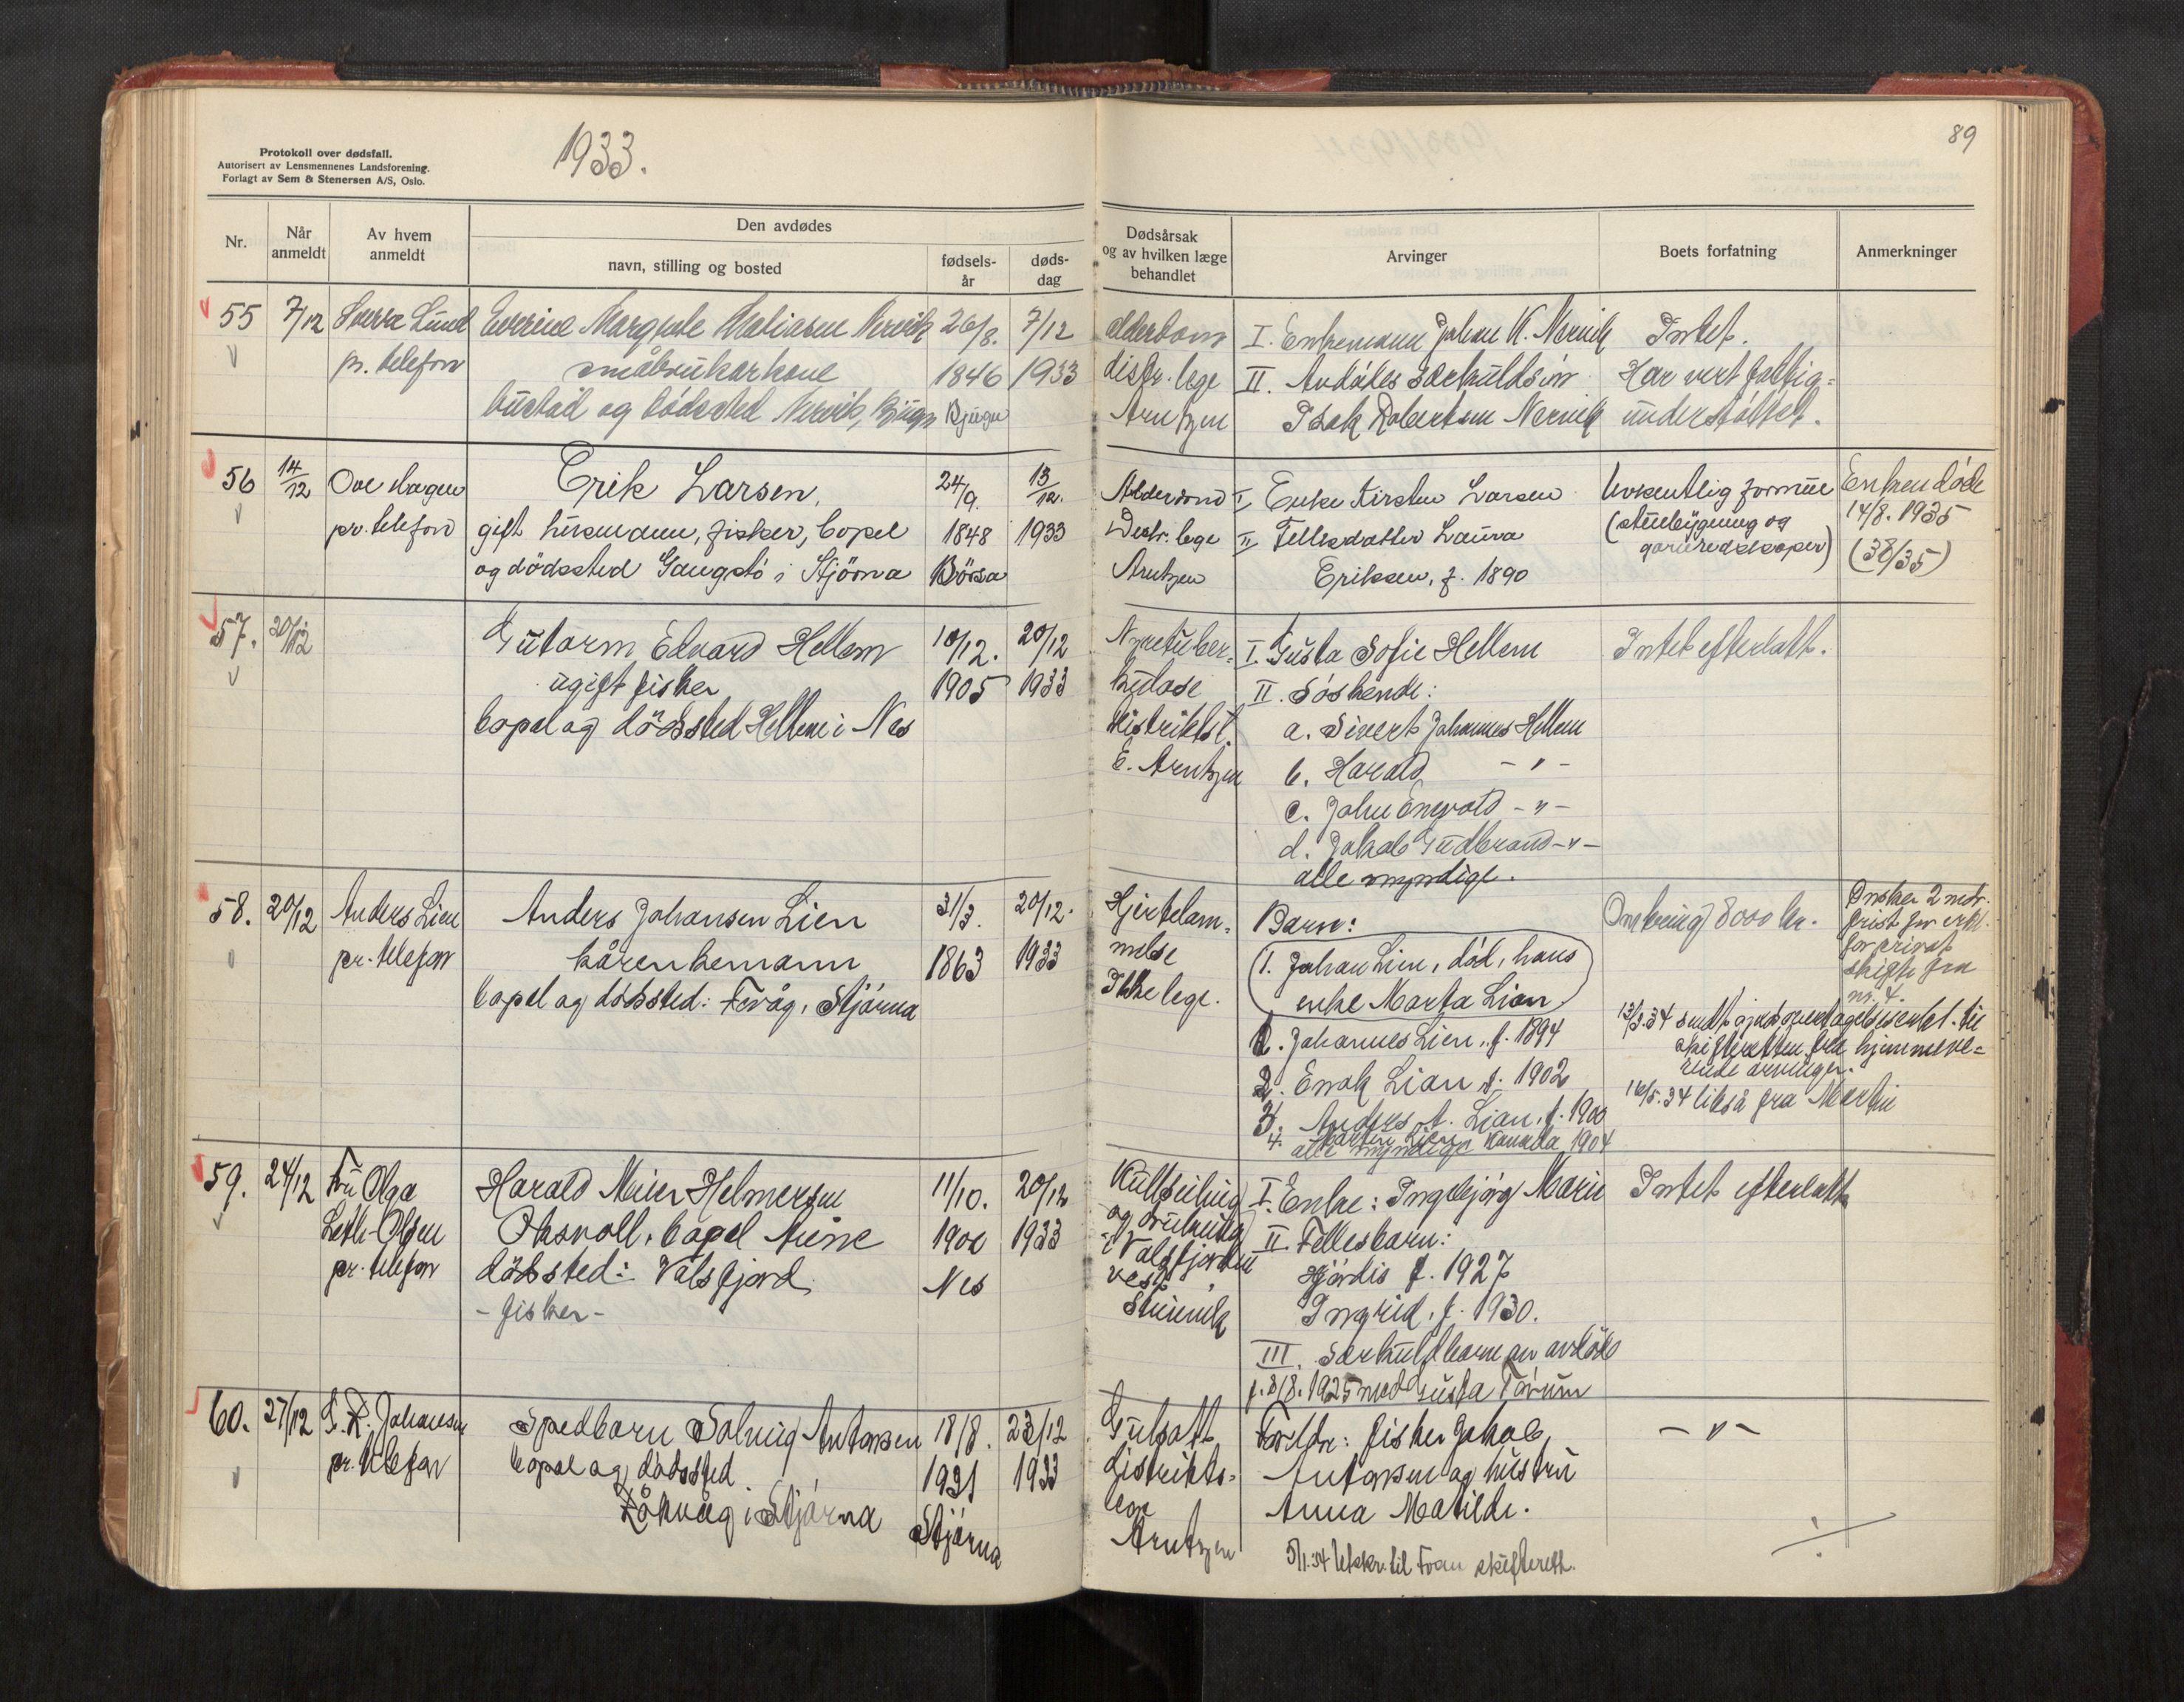 Protokoll over dødsfall.
Autorisert av Lensmennenes Landsforening.
Forlagt av Sem & Stenersen A/S, Oslo.
1933.
89
Nr.
Når anmeldt
Av hvem anmeldt
Den avdødes
navn, stilling og bosted
fødsels-år
døds-dag
Dødsårsak og av hvilken læge behandlet
Arvinger
Boets forfatning
Anmerkninger
55 7/12 Sverre Lund
pr. telefon
Nervik
småbrukarkone
bustad og dødssted Nervik, Bjugn
26/8.
1846
Bjugn
7/12
1933
alderdom
distr. lege
Arntzen
I. Enkemann Johan K. Nervik
II. Avdødes særkuldsøn
Isak Nervik
Intet.
Har vert fattig-
understøttet.
56 14/12 Ove Hagen
pr. telefon
Erik Larsen,
gift husmann, fisker, bopel
og dødssted Gangstø i Stjørna
24/9.
1848
Børsa
13/12.
1933
Alderdom
Distr. lege
Arntzen
I, Enke Kirsten Larsen
II, Fellesdatter Laura
Eriksen, f. 1890
Uvesentlig formue
(stuebygning og
garnredskaper)
Enken døde
14/8. 1935
(38/35)
57. 20/12
Gutorm Edvard Hellem
ugift fisker
bopel og dødssted Hellem i Nes
10/12.
1905
20/12
1933
Nyretuber-
kulose
distriktsl.
E. Arntzen
I. Gusta Sofie Hellem
II. Søskende:
a. Sivert Johannes Hellem
b. Harald -"-
c. John Enevold -"-
d. Jakob Gudbrand -"-
alle myndige.
Intet efterlatt.
58. 20/12 Anders Lien
pr. telefon
Anders Johansen Lien
kårenkemann
bopel og dødssted: Fevåg, Stjørna
31/3.
1863
20/12.
1933
Hjertelam-
melse
Ikke lege.
Barn:
1. Johan Lien, død, hans
enke Marta Lian.
1. Johannes Lien, f. 1894
2. Enok Lian f. 1902
3. Anders A. Lian, f. 1900
4. Martin Lien Kanada 1904
alle myndige
Omkring 8000 kr.
Ønsker 2 mdr.
frist for erkl.
for privat
skifte fra
nr. 4.
13/3.34 sendt
skifteretten fra hjemmevæ-
rende arvinger.
16/5.34 likså fra Martin
59. 24/12 Fru Olga
Leth-Olsen
pr. telefon
Harald Meier Helmersen
Oksvoll, bopel Aune
dødssted: Valsfjord
- fisker -
11/10.
1900
Nes
20/12
1933
Kullseiling
og drukning
i Valsfjorden
vest
I. Enke: Ingebjørg Marie
II. Fellesbarn:
Hjørdis f. 1927
Ingrid, f. 1930.
III. Særkullbarn av avdøde
f. 8/8. 1925 med Gusta Tørum
Intet efterlatt
60. 27/12 G. K. Johansen
pr. telefon
Spedbarn Solveig Antonsen
bopel og dødssted
Råkvåg i Stjørna
18/8.
1931
Stjørna
23/12
1933
Gulsott
Distrikts-
lege
Arntzen
Foreldre: fisker Jakob
Antonsen og hustru
Anna Matilde.
- " -
5/1.34 Utskr. til Fosen skifterett.